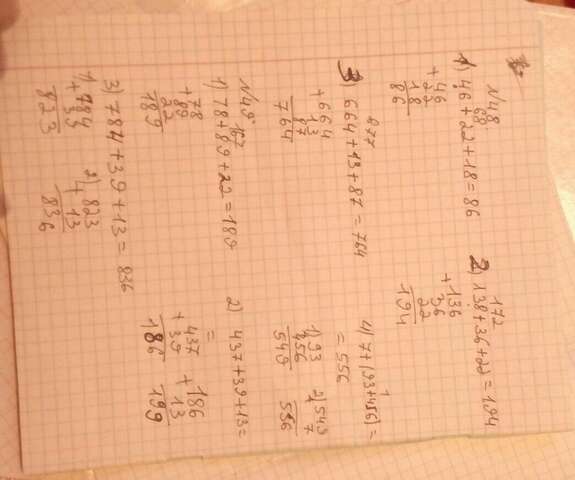 N48
68
1) 46+22+18=86
+46
22
18
86
172
2) 138+36+22=194
+136
36
22
194
677
3) 664+13+87=764
+664
13
87
764
4) 7+(93+456)=
=556
1) 93
456
549
2) 549
7
556
N49
167
1) 78+89+22=189
+78
89
22
189
2) 437+39+13=
=
+437
39
186
+186
13
199
3) 784+39+13=836
1) 784
+39
823
2) 823
+13
836